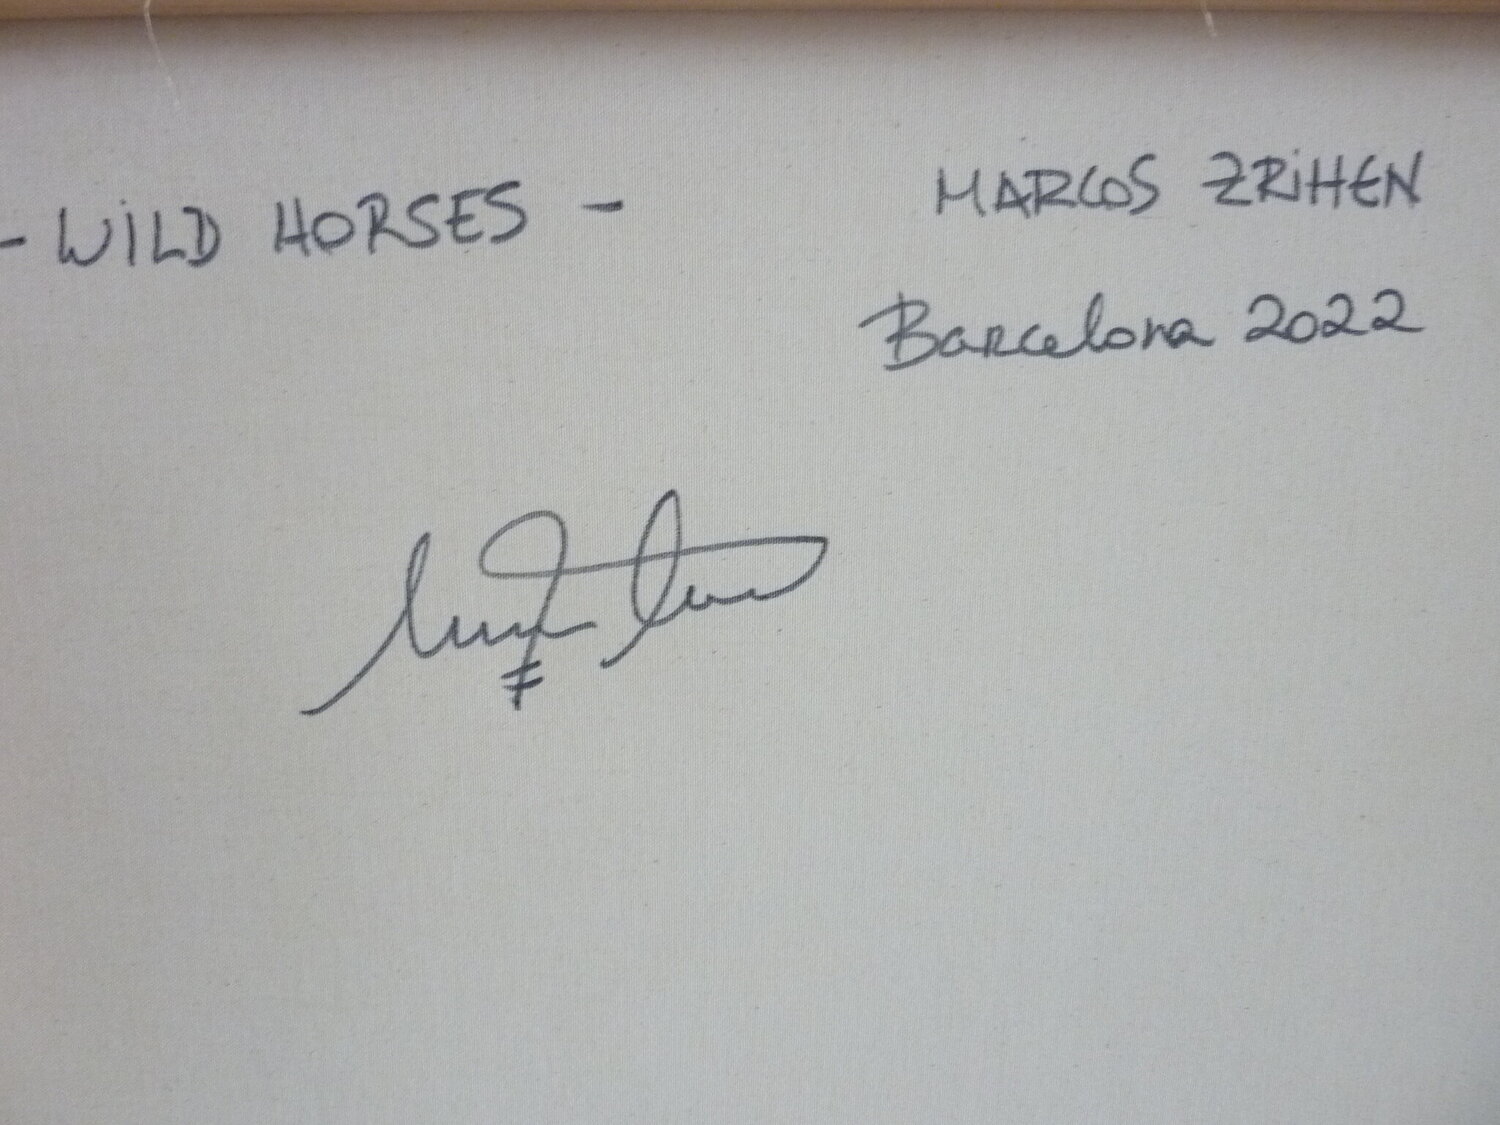 - WILD HORSES -
MARCOS ZRIHEN
Barcelona 2022